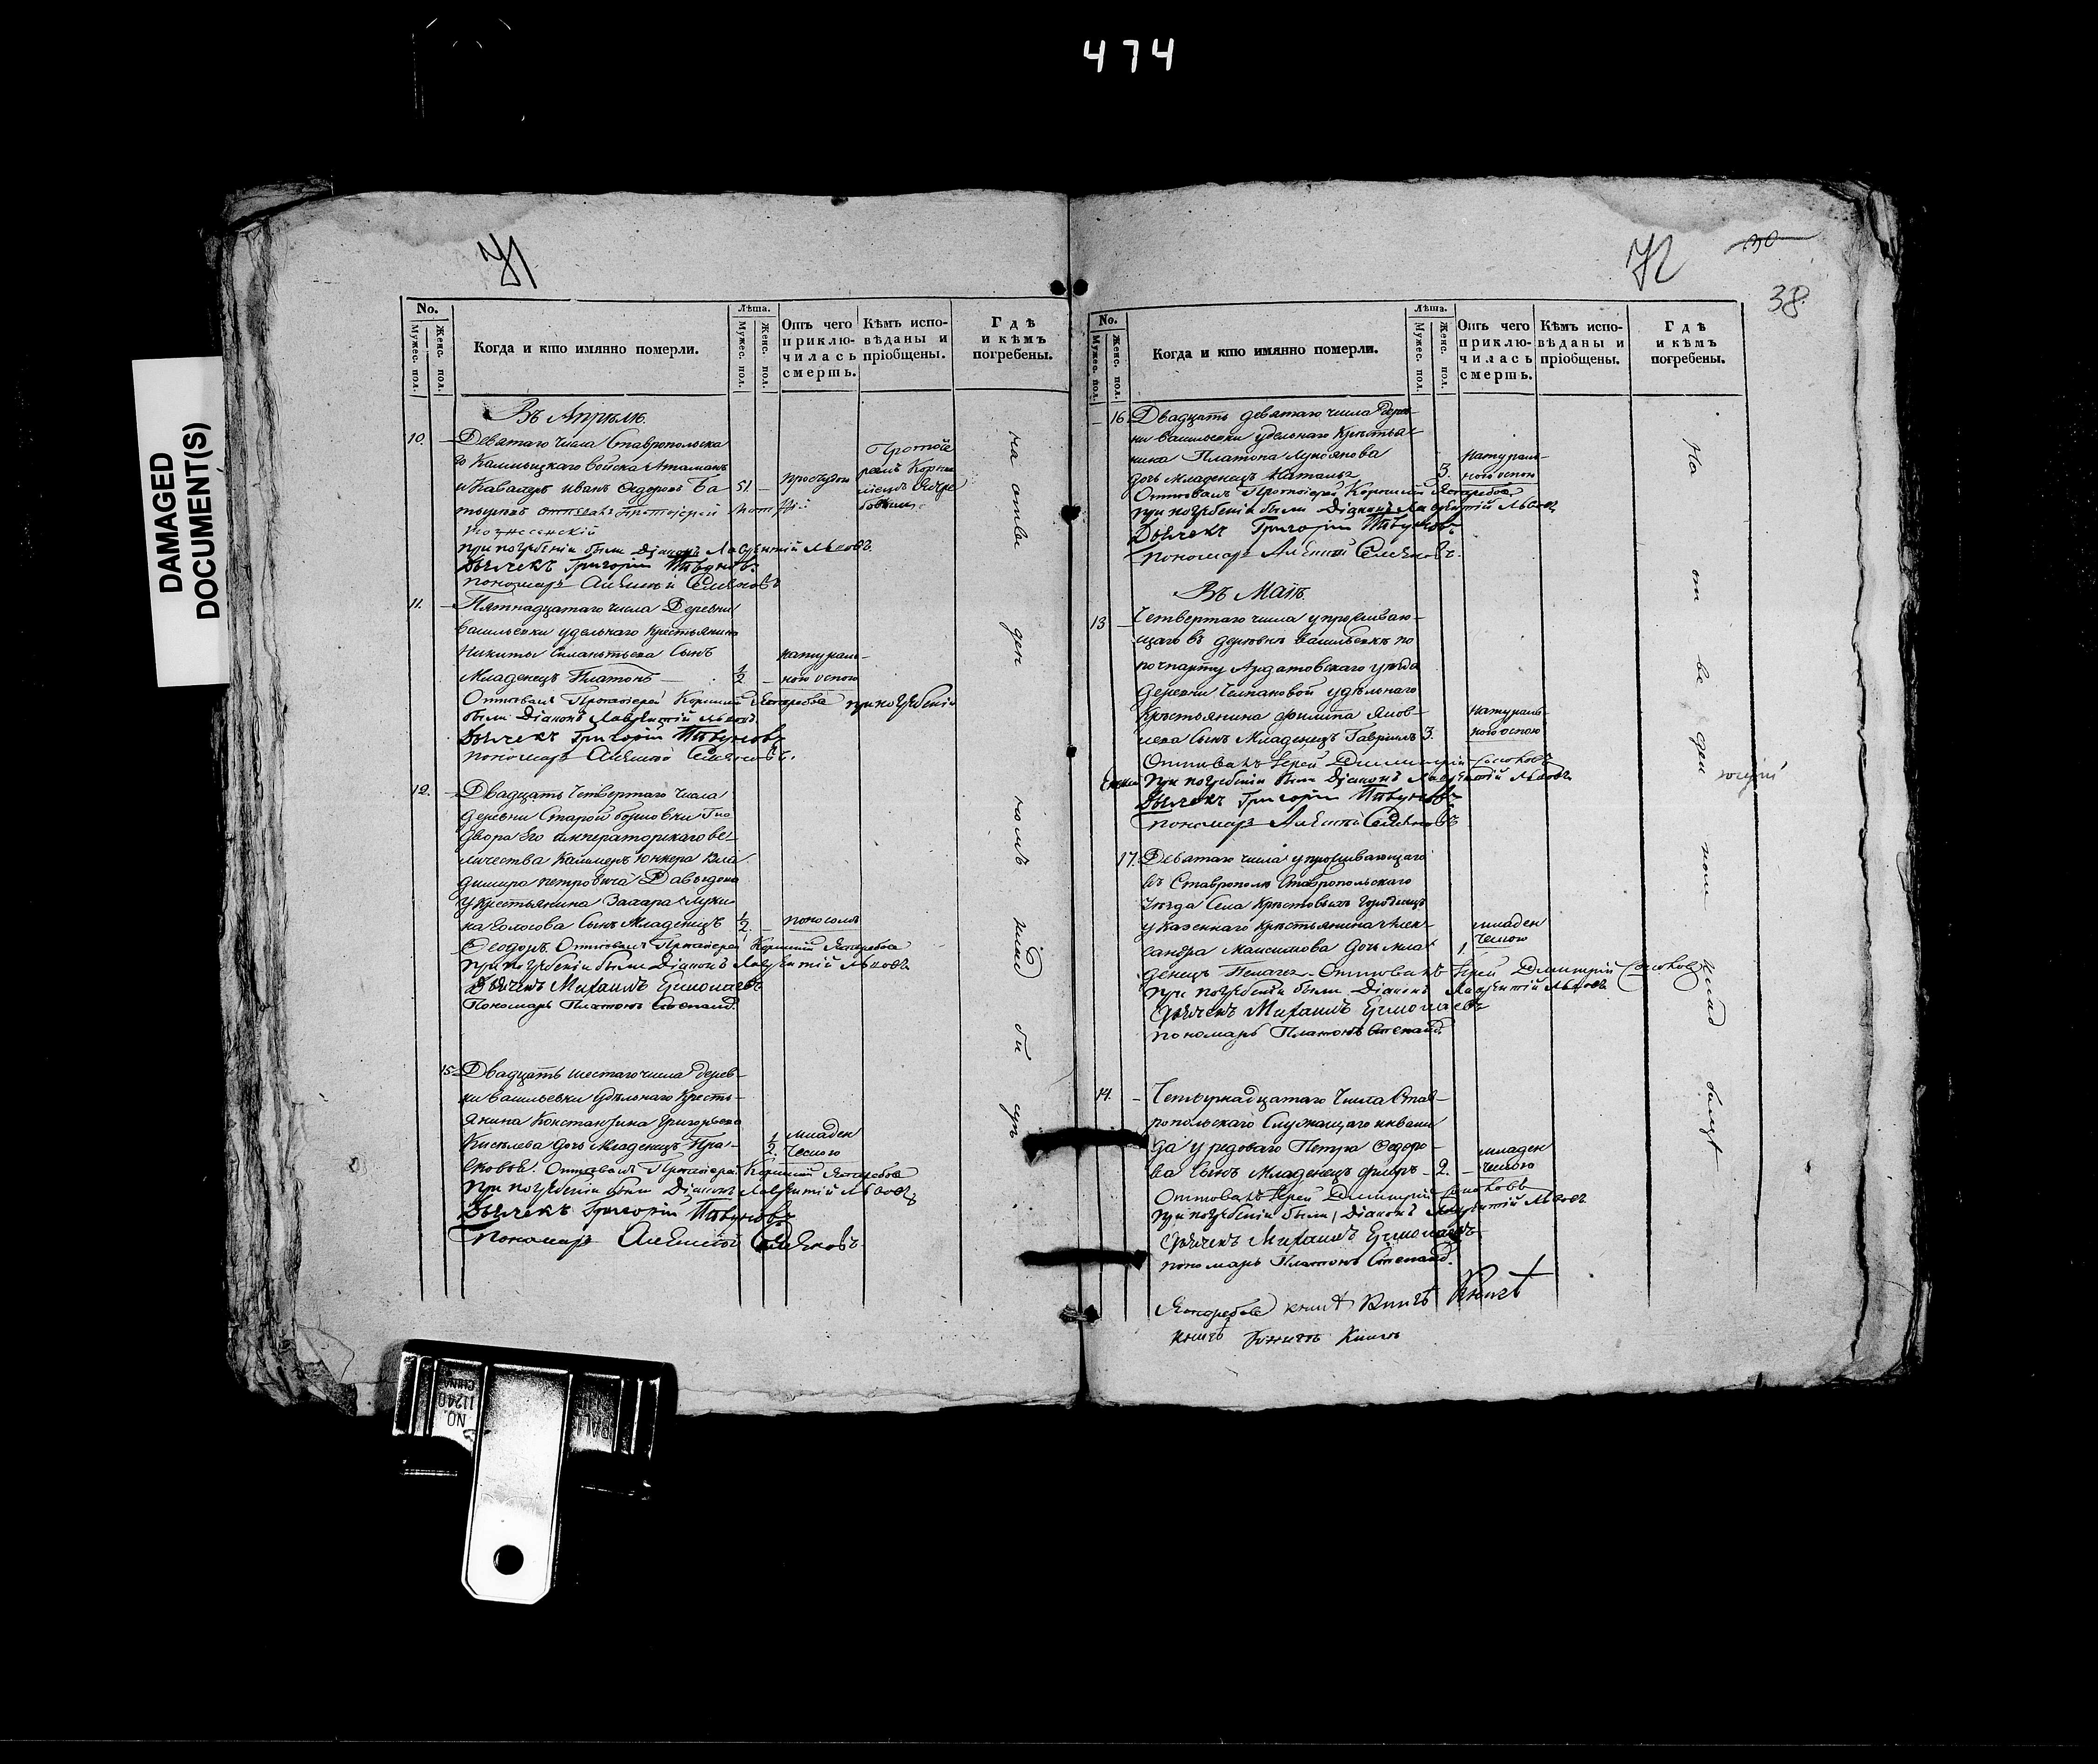 474
DAMAGED
DOCUMENT(S)
71
No.
Мужес. пол.
Женс. пол.
Когда и кто имянно померли.
Лѣта.
Мужес. пол.
Женс. пол.
Отъ чего
приклю-
чилась
смерть.
Кѣмъ испо-
вѣданы и
пріобщены.
Гдѣ
и кѣмъ
погребены.
Въ Апрѣлѣ.
10. Девятаго числа Ставропольска
го Калмыцкаго войска Атаманъ
и Кавалеръ Иванъ Ѳедоровъ Ба 51.
тыревъ отпевалъ Протоіерей
при погребеніи были Діаконъ Лаврентій Львовъ
Дьячекъ Григорій
пономарь Алексѣй Семеновъ
простудою
Протоіе
реемъ Корни
лиемъ Ястре
бовымъ
11. Пятнадцатаго числа Деревни
Васильевки удельнаго крестьянина
Никиты Силантьева сынъ
Младенецъ Платонъ 1/2
натураль-
ною оспою
Отпевалъ Протоіерей Корнилий Ястребовъ при погребеніи
были Діаконъ Лаврентій Львовъ
Дьячекъ Григорій
пономарь Алексѣй Семеновъ.
12. Двадцать четвертаго числа
деревни Старой
Двора Его Императорскаго ве-
личества Каммеръ Юнкера Вла
димира Петровича Давыдова
у крестьянина Захара Луки
на Колосова сынъ Младенецъ 1/2
поносомъ
Ѳеодоръ. Отпевалъ Протоіерей Корнилий Ястребовъ
при погребеніи были Діаконъ Лаврентій Львовъ
Дьячекъ Михаилъ Ермолаевъ
Пономарь Платонъ Степановъ.
15. Двадцать шестаго числа дерев-
ни Васильевки Удѣльнаго кресть-
янина Константина Григорьева
Киселева дочь Младенецъ Пра- 1/2
младен
ческою
сковья. Отпевалъ Протоіерей Корнилий Ястребовъ
при погребеніи были Діаконъ Лаврентій Львовъ
Дьячекъ Григорій
Пономарь Алексѣй Семеновъ
72
38.
No.
Мужес. пол.
Женс. пол.
Когда и кто имянно померли.
Лѣта.
Мужес. пол.
Женс. пол.
Отъ чего
приклю-
чилась
смерть.
Кѣмъ испо-
вѣданы и
пріобщены.
Гдѣ
и кѣмъ
погребены.
16. Двадцать девятаго числа дерев-
ни Васильевки удельнаго Крестья-
нина Платона Лукоянова
дочь младенецъ Наталья 3.
натураль-
ною оспою
Отпевалъ Протоіерей Корнилий Ястребовъ
при погребеніи были Діаконъ Лаврентій Львовъ
Дьячекъ Григорій
пономарь Алексѣй Семеновъ.
Въ Маіѣ.
13 Четвертаго числа у проживаю-
щаго въ деревнѣ Васильевкѣ по
Ардатовскаго уѣзда
деревни удѣльнаго
крестьянина Филипа Яков-
лева сынъ Младенецъ Гавріилъ 3.
натураль-
ною оспою
Отпевалъ Іерей Димитрій Соколовъ
При погребеніи были Діаконъ Лаврентій Львовъ
Дьячекъ Григорій
пономарь Алексѣй Семеновъ
17. Девятаго числа у проживающаго
въ Ставрополѣ Ставропольскаго
Уезда Села Крестовыхъ Городищъ
у казеннаго крестьянина Алек-
сандра Максимова дочь мла- 1.
младен
ческою
денецъ Пелагея. Отпевалъ Іерей Димитрій Соколовъ
При погребеніи были Діаконъ Лаврентій Львовъ
Дьячекъ Михаилъ Ермолаевъ
пономарь Платонъ Степановъ
14. Четырнадцатаго числа Став-
ропольскаго Служащаго инвали
да у рядоваго Петра Ѳедоро-
ва сынъ Младенецъ 2.
младен
ческою
Отпевалъ Іерей Димитрій Соколовъ
при погребеніи были Діаконъ Лаврентій Львовъ
Дьячекъ Михаилъ Ермолаевъ
пономарь Платонъ Степановъ.